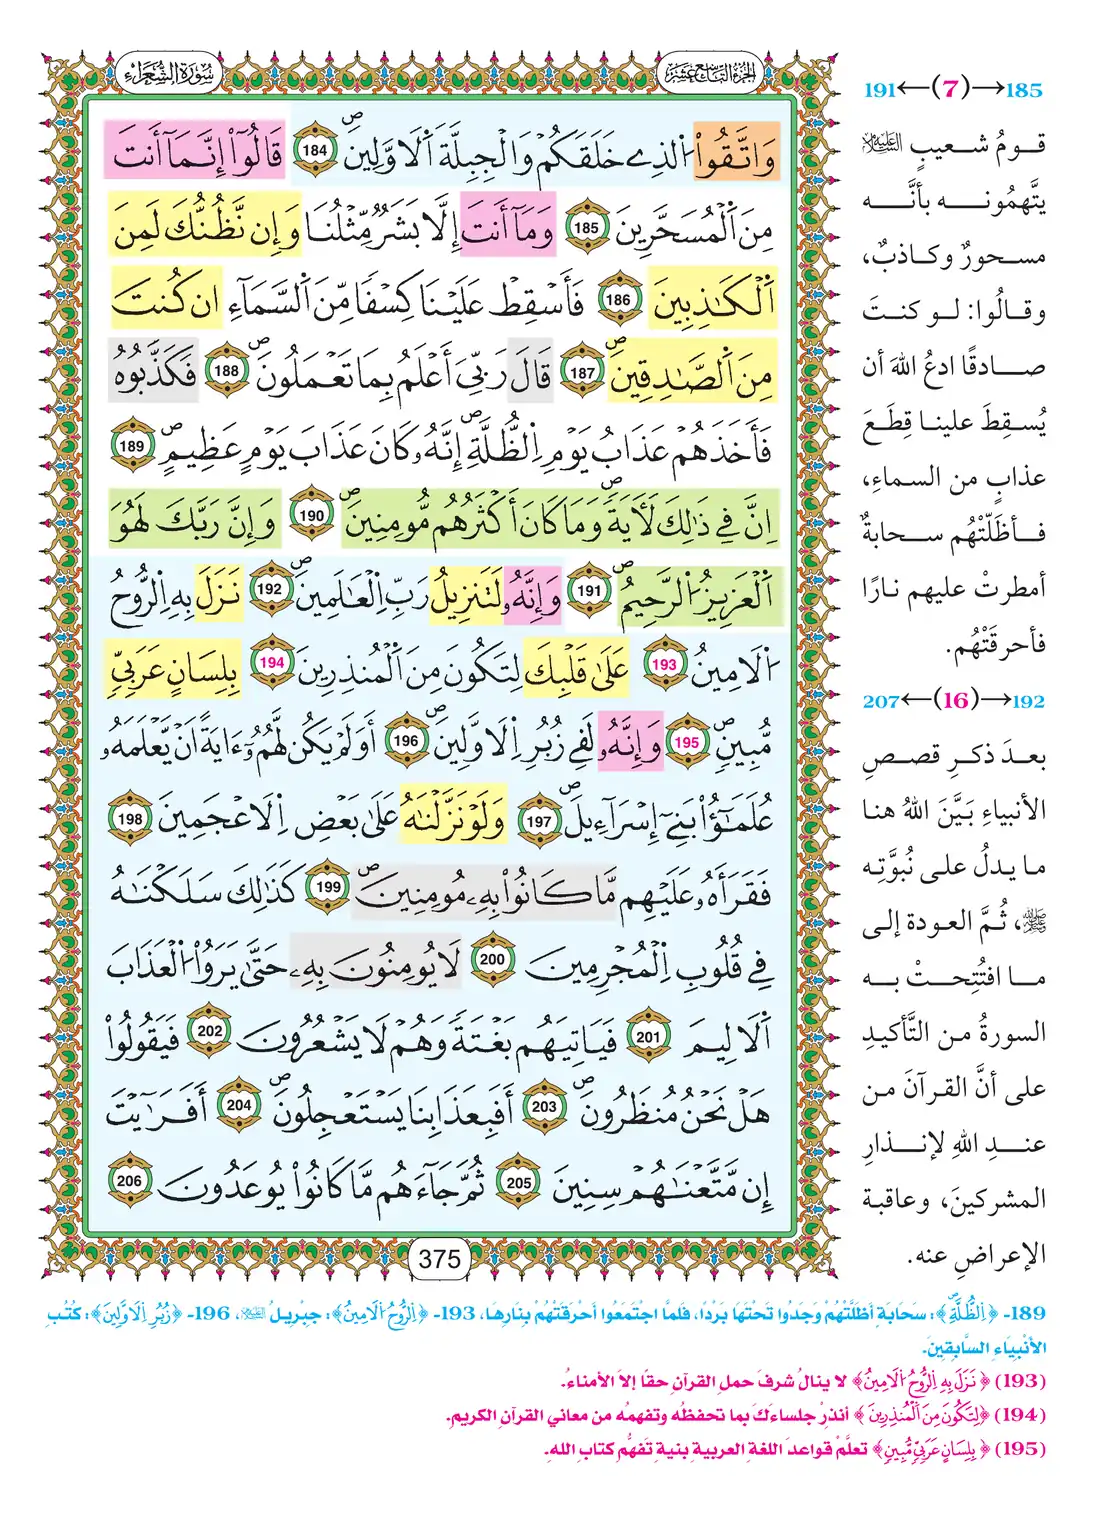 سُورَةُ الشُّعَرَاءِ
الجُزْءُ التَّاسِعَ عَشَرَ
وَاتَّقُوا۟ اُ۬لذِے خَلَقَكُمْ وَالْجِبِلَّةَ اَ۬لَاوَّلِينَۖ 184 قَالُوٓا۟ إِنَّمَآ أَنتَ
مِنَ اَ۬لْمُسَحَّرِينَ 185 وَمَآ أَنتَ إِلَّا بَشَرٞ مِّثْلُنَا وَإِن نَّظُنُّكَ لَمِنَ
اَ۬لْكَٰذِبِينَ 186 فَأَسْقِطْ عَلَيْنَا كِسْفٗا مِّنَ اَ۬لسَّمَآءِ ان كُنتَ
مِنَ اَ۬لصَّٰدِقِينَۖ 187 قَالَ رَبِّيَ أَعْلَمُ بِمَا تَعْمَلُونَۖ 188 فَكَذَّبُوهُ
فَأَخَذَهُمْ عَذَابُ يَوْمِ اِ۬لظُّلَّةِۖ إِنَّهُۥ كَانَ عَذَابَ يَوْمٍ عَظِيمٍۖ 189
اِنَّ فِے ذَٰلِكَ لَأٓيَةٗۖ وَمَا كَانَ أَكْثَرُهُم مُّومِنِينَۖ 190 وَإِنَّ رَبَّكَ لَهُوَ
اَ۬لْعَزِيزُ اُ۬لرَّحِيمُۖ 191 وَإِنَّهُۥ لَتَنزِيلُ رَبِّ اِ۬لْعَٰلَمِينَۖ 192 نَزَلَ بِهِ اِ۬لرُّوحُ
اُ۬لَامِينُ 193 عَلَىٰ قَلْبِكَ لِتَكُونَ مِنَ اَ۬لْمُنذِرِينَ 194 بِلِسَانٍ عَرَبِيّٖ
مُّبِينٖۖ 195 وَإِنَّهُۥ لَفِے زُبُرِ اِ۬لَاوَّلِينَۖ 196 أَوَلَمْ يَكُن لَّهُمُۥٓ ءَايَةً اَنْ يَّعْلَمَهُۥ
عُلَمَٰٓؤُا۟ بَنِےٓ إِسْرَآءِيلَۖ 197 وَلَوْ نَزَّلْنَٰهُ عَلَىٰ بَعْضِ اِ۬لَاعْجَمِينَ 198
فَقَرَأَهُۥ عَلَيْهِم مَّا كَانُوا۟ بِهِۦ مُومِنِينَۖ 199 كَذَٰلِكَ سَلَكْنَٰهُ
فِے قُلُوبِ اِ۬لْمُجْرِمِينَ 200 لَا يُومِنُونَ بِهِۦ حَتَّىٰ يَرَوُا۟ اُ۬لْعَذَابَ
اَ۬لَالِيمَ 201 فَيَاتِيَهُم بَغْتَةٗ وَهُمْ لَا يَشْعُرُونَ 202 فَيَقُولُوا۟
هَلْ نَحْنُ مُنظَرُونَۖ 203 أَفَبِعَذَابِنَا يَسْتَعْجِلُونَۖ 204 أَفَرَٰٓيْتَ
إِن مَّتَّعْنَٰهُمْ سِنِينَ 205 ثُمَّ جَآءَهُم مَّا كَانُوا۟ يُوعَدُونَ 206
375
185→(7)←191
قومُ شعيبٍ عليه السلام
يتَّهمُونه بأنَّه
مسحورٌ وكاذبٌ،
وقالُوا: لو كنتَ
صادقًا ادعُ اللهَ أن
يُسقِطَ علينا قِطَعَ
عذابٍ من السماءِ،
فأظلّتْهُم سحابةٌ
أمطرتْ عليهم نارًا
فأحرقَتْهُم.
192→(16)←207
بعدَ ذكرِ قصصِ
الأنبياءِ بَيَّنَ اللهُ هنا
ما يدلُ على نُبوَّتِه
ﷺ، ثُمَّ العودة إلى
ما افتُتِحتْ به
السورةُ من التَّأكيدِ
على أنَّ القرآنَ من
عندِ اللهِ لإنذارِ
المشركينَ، وعاقبة
الإعراضِ عنه.
189- ﴿اِ۬لظُّلَّةِ﴾: سَحَابَةٍ أظَلَّتْهُمْ وَجَدُوا تَحْتَهَا بَرْدًا، فَلَمَّا اجْتَمَعُوا أحْرَقَتْهُمْ بِنَارِهَا، 193- ﴿اِ۬لرُّوحُ اُ۬لَامِينُ﴾: جِبْرِيلُ عليه السلام، 196- ﴿زُبُرِ اِ۬لَاوَّلِينَ﴾: كُتُبِ
الأنْبِيَاءِ السَّابِقِينَ.
(193) ﴿نَزَلَ بِهِ اِ۬لرُّوحُ اُ۬لَامِينُ﴾ لا ينالُ شرفَ حملِ القرآنِ حقًا إلا الأمناءُ.
(194) ﴿لِتَكُونَ مِنَ اَ۬لْمُنذِرِينَ﴾ أنذرْ جلساءَكَ بما تحفظُه وتفهمُه من معاني القرآنِ الكريمِ.
(195) ﴿بِلِسَانٍ عَرَبِيّٖ مُّبِينٖ﴾ تعلَّمْ قواعدَ اللغةِ العربيةِ بنيةِ تَفهُّمِ كتابِ اللهِ.